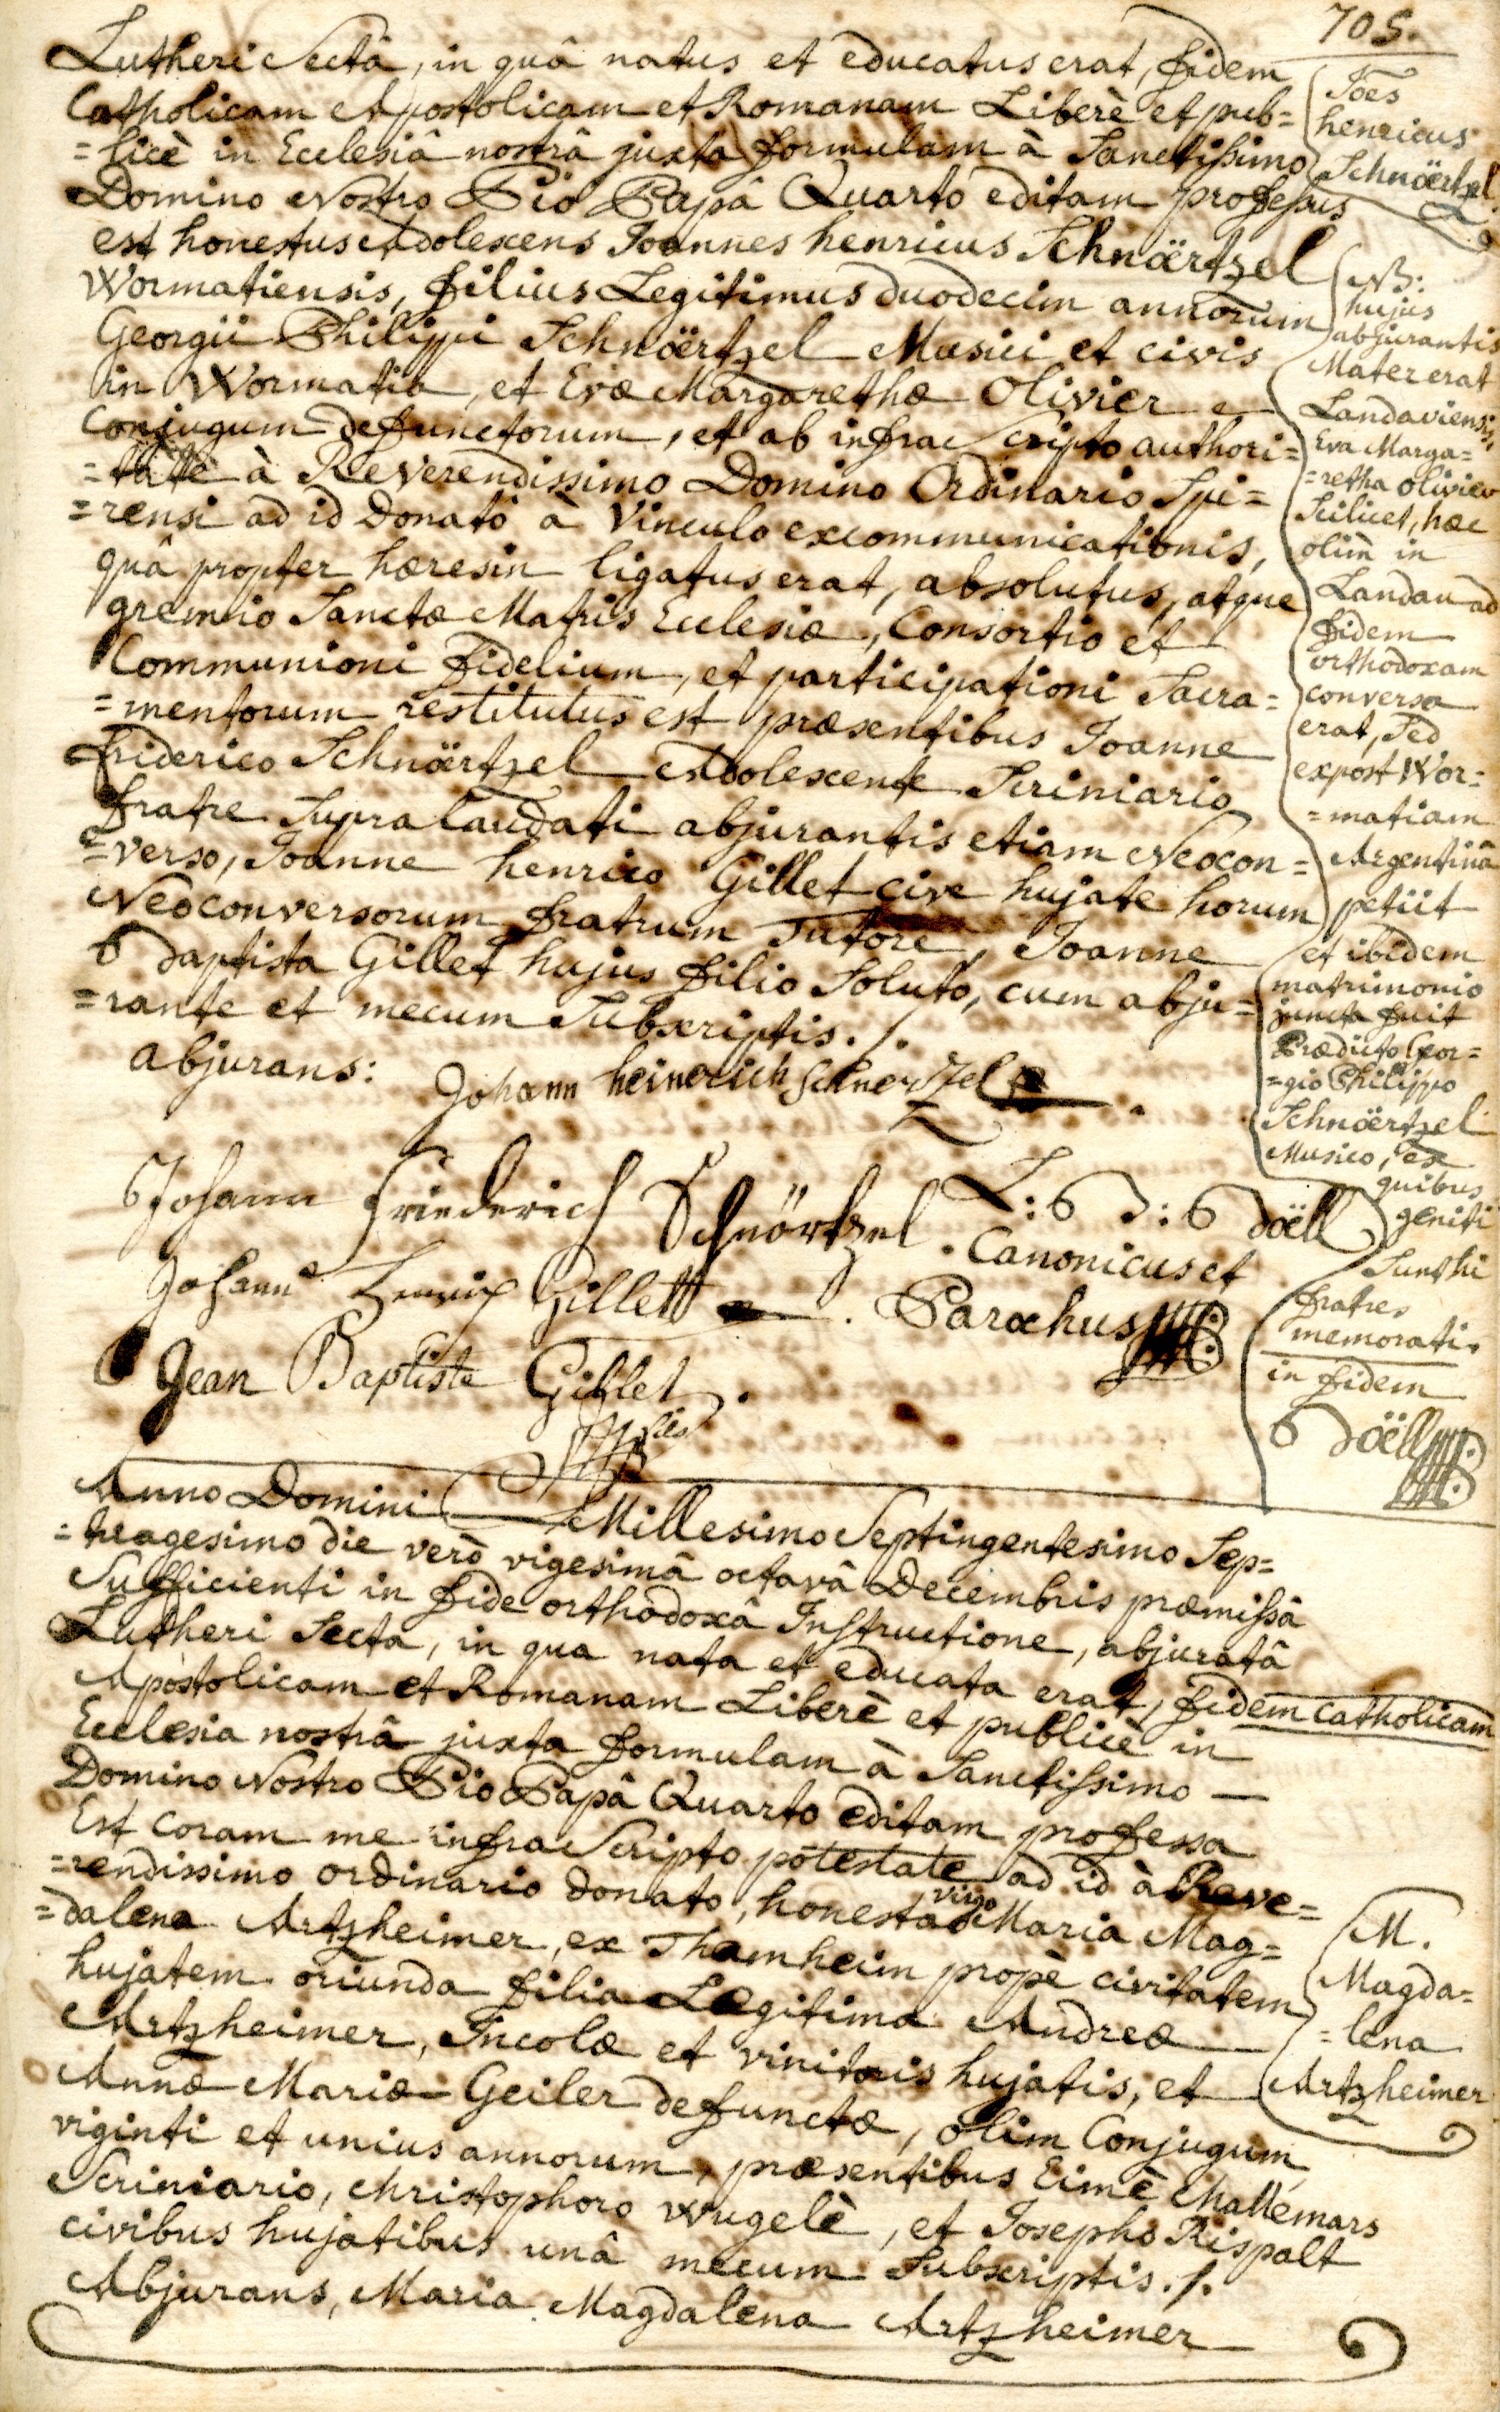 705.
Lutheri Sectâ, in quâ natus et educatus erat, fidem
Catholicam Apostolicam et Romanam Liberè et pub=
=licè in Ecclesiâ nostrâ juxta formulam à Sanctissimo
Domino Nostro Pio Papâ Quarto editam professus
est honestus Adolescens Joannes henricus Schnörtzel
Wormatiensis, filius Legitimus duodecim annorum
Georgii Philippi Schnörtzel Musici et civis
in Wormatia, et Evæ Margarethæ Olivier
Conjugum defunctorum, et ab infra Scripto authori=
=tate à Reverendissimo Domino Ordinario Spi=
=rensi ad id Donatô à Vinculo excommunicationis,
quâ propter hæresin ligatus erat, absolutus, atque
gremio Sanctæ Matris Ecclesiæ, Consortio et
Communioni fidelium, et participationi Sacra=
=mentorum restitutus est præsentibus Joanne
friderico Schnörtzel Adolescente Scriniario
fratre Supra laudati abjurantis etiam Neocon=
=verso, Joanne henrico Gillet cive hujate horum
Neoconversorum fratrum Tutore, Joanne
Baptista Gillet hujus filio Soluto, cum abju=
=rante et mecum Subscriptis ./.
abjurans: Johann heinerich Schnerzel
Johann Friederich Schnörtzel.
L: B J: B döell
Canonicus et
Parochus
Johann Henrich Gillett
Jean Baptiste Gillet
fils
Joes
henricus
Schnörtzel
NB:
hujus
abjurantis
Mater erat
Landaviensis,
Eva Marga=
=retha olivier
Scilicet, hæc
olim in
Landau ad
fidem
orthodoxam
conversa
erat, Sed
expost Wor=
=matiam
Argentinâ
petiit
et ibidem
matrimonio
juncta fuit
Prædicto Geor=
=gio Philippo
Schnörtzel
Musico, ex
quibus
geniti
Sunt hi
fratres
memorati.
in fidem
B döell
Anno Domini Millesimo Septingentesimo Sep=
=tuagesimo die verò vigesimâ octavâ Decembris præmissâ
Sufficienti in fide orthodoxâ Instructione, abjuratâ
Lutheri Secta, in qua nata et educata erat, fidem catholicam
Apostolicam et Romanam Liberè et publicè in
Ecclesia nostrâ juxta formulam à Sanctissimo
Domino Nostro Pio Papâ Quarto editam professa
Est coram me infra Scripto potestate ad id à Reve=
=rendissimo ordinario donato, honesta virgo Maria Mag=
=dalena Artzheimer, ex Thamheim propè civitatem
hujatem oriunda filia Legitima Andreæ
Artzheimer, Incolæ et vinitoris hujatis, et
Annæ Mariæ Geiler defunctæ, olim Conjugum,
viginti et unius annorum, præsentibus Eimè Mallemars
Scriniario, christophoro Wugelè, et Josepho Rispalt
civibus hujatibus unâ mecum Subscriptis ./.
Abjurans, Maria Magdalena Artzheimer
M.
Magda=
=lena
Artzheimer